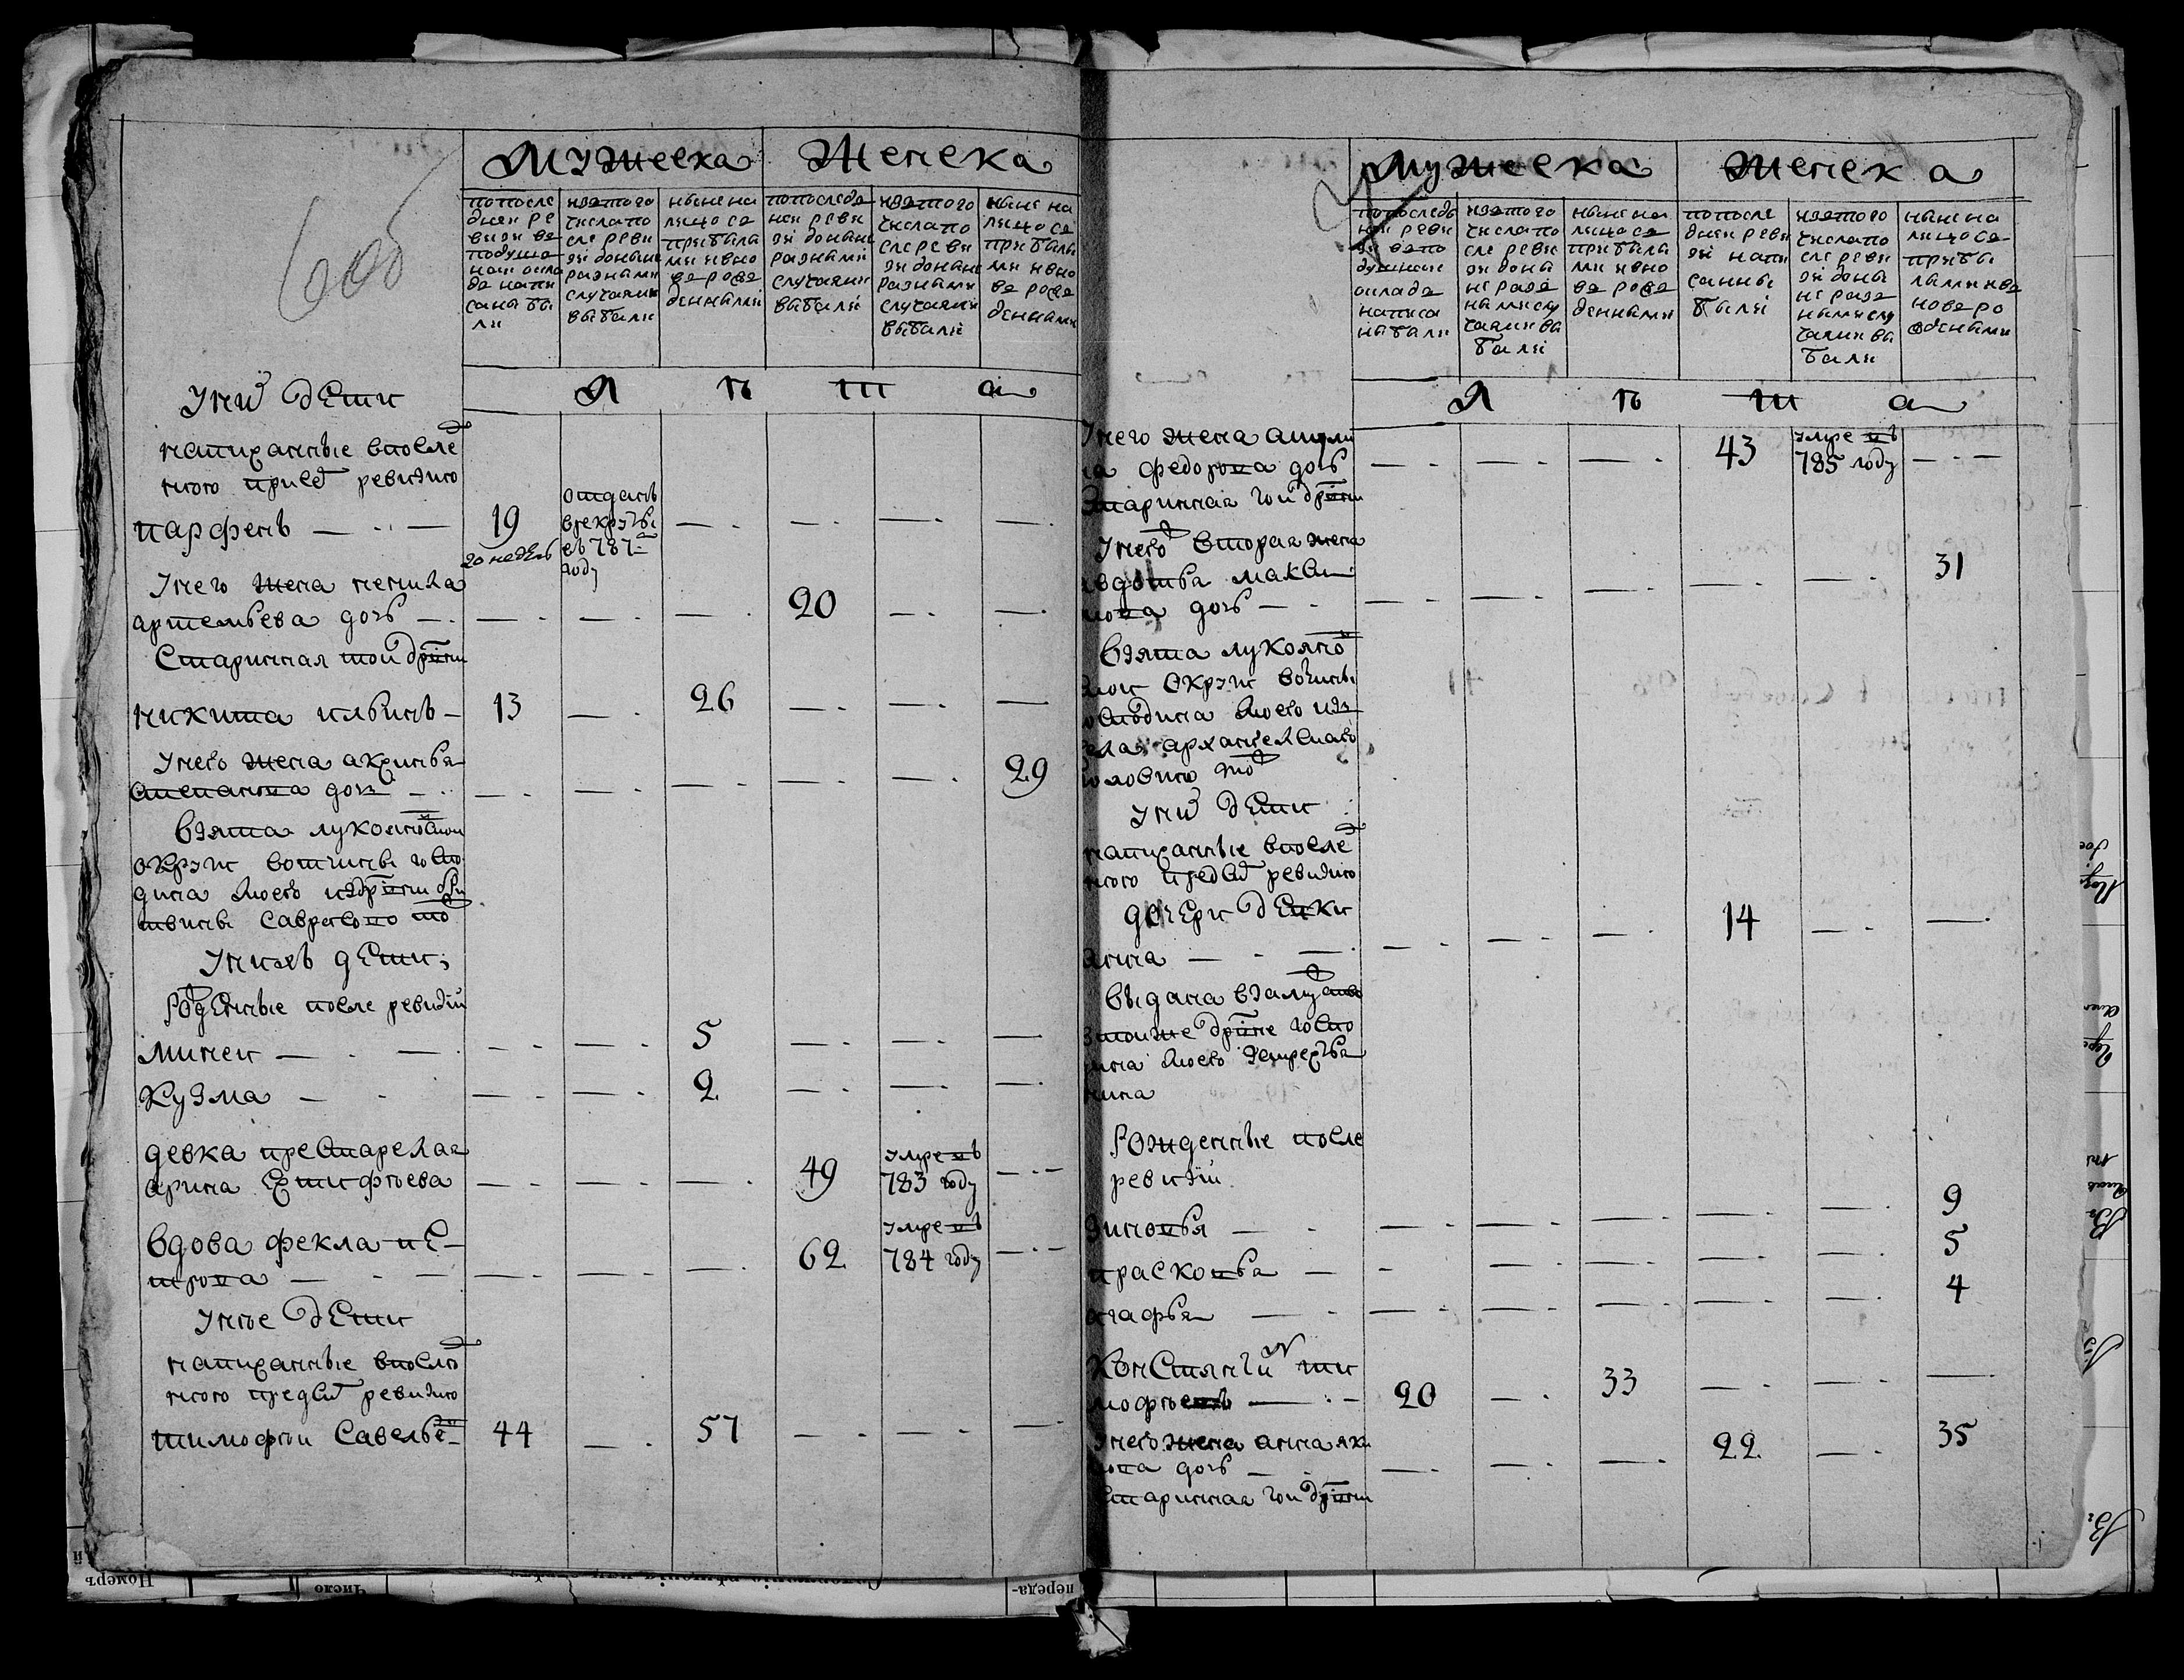 600
Мужеска Женска
попосле
дней ре
визи ве
подушно
мъ окла
де напи
саны бы
ли
изтого
числапо
сле реви
зи доныне
разными
случаями
выбыли
ныне на
лицо съ
прибылы
ми ивно
вь рож
денными
попоследн
ней реви
зи доныне
разными
случаями
выбыли
изтого
числапо
сле реви
зи доныне
разными
случаями
выбыли
ныне на
лицо съ
прибылы
ми ивно
вь рож
денными
Л Ѣ Т А
Унихъ дети
написанные впослед
ней пред ревизию
парфенъ 19 отданъ
20 недель
врекруты
въ 787м
году
Унего жена ненила
артемьева дочь 20
Старинная тои дрвни
никита ильинъ 13 26
Унего жена акулина
степанова дочь 29
Взята лукояновской
округи вотчины госпо
дина моего издрвни
Унихъ дети;
Рожденные после ревизии
минеи 5
Кузма 2
девка престарелая
арина Ерофеева 49 умре въ
783 году
Вдова фекла пе
трова 62 умре въ
784 году
Унее дети
написанные впослед
ней пред ревизию
тимофеи Савелье 44 57
Мужеска Женска
попоследн
ней реви
зи вепо
душном
окладе
написа
ны были
изтого
числапо
сле реви
зи доны
не разн
ными слу
чаями вы
были
ныне на
лицо съ
прибылы
ми ивно
вь рож
денными
попосле
дней реви
зи напи
санны
были
изтого
числапо
сле реви
зи доны
не разн
ными слу
чаями вы
были
ныне на
лицо съ
прибы
лыми ив
новь ро
ждеными
Л Ѣ Т А
Унего жена
федорова дочь 43 умре въ
785 году
Старинная тои дрвни
Унего вторая жена
авдотья макси
мова дочь 31
Взята лукоянов
ской округи вотчины
господина моего из
села архангельскаго
Унихъ дети
написанные впослед
ней пред ревизию
дочери девки
анна 14
выдана взамужство
втоиже дрвне госпо
дина моего
Рожденные после
ревизии
зиновья 9
прасковья 5
агафья 4
Констянтин ти
мофеевъ 20 33
Унего жена анна як
дочь 22 35
Старинная тои дрвни
Номеръ
Число
переда-